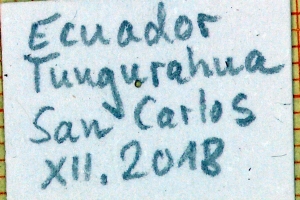 Ecuador
Tungurahua
San Carlos
XII. 2018